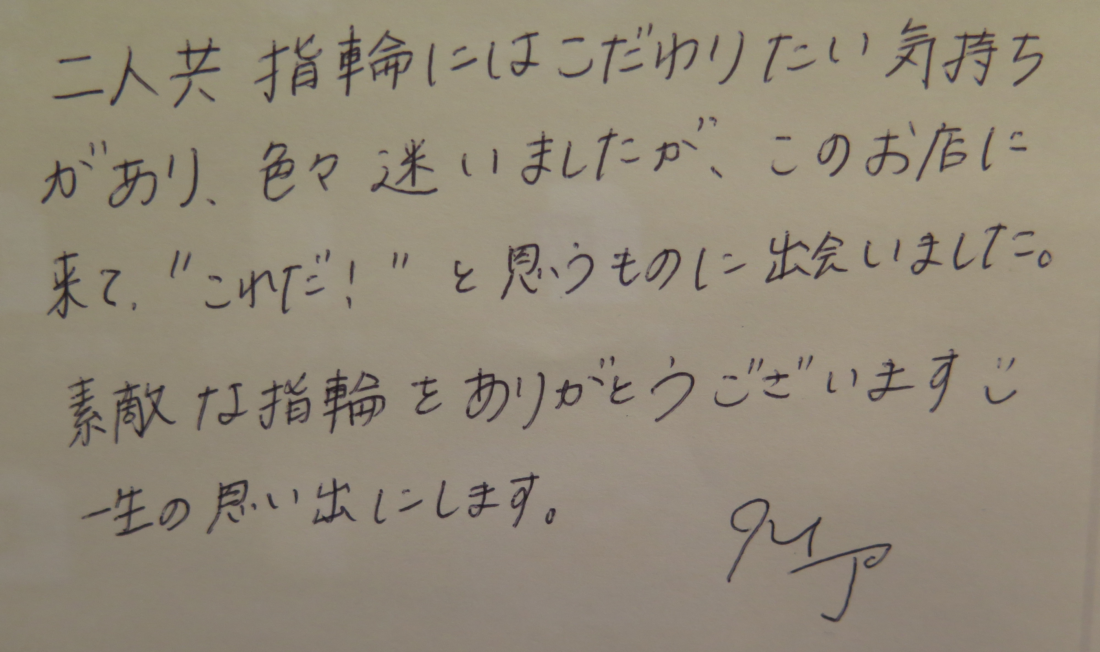 二人共 指輪にはこだわりたい気持ち
があり、色々迷いましたが、このお店に
来て、"これだ！"と思うものに出会いました。
素敵な指輪をありがとうございます
一生の思い出にします。